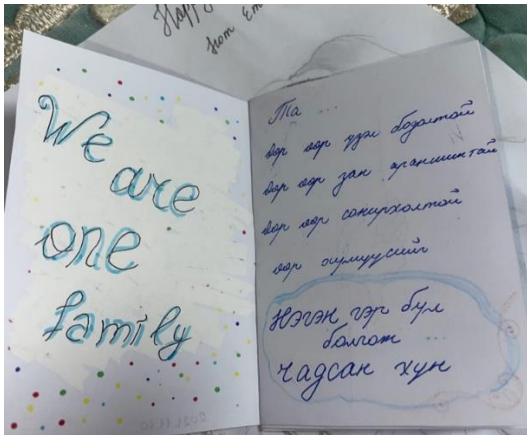 Happy
from Em
We
are
one
family
Та ...
өөр өөр үзэл бодолтой
өөр өөр зан араншинтай
өөр өөр сонирхолтой
өөр хүмүүсийг
Нэгэн гэр бүл
болгож ...
чадсан хүн